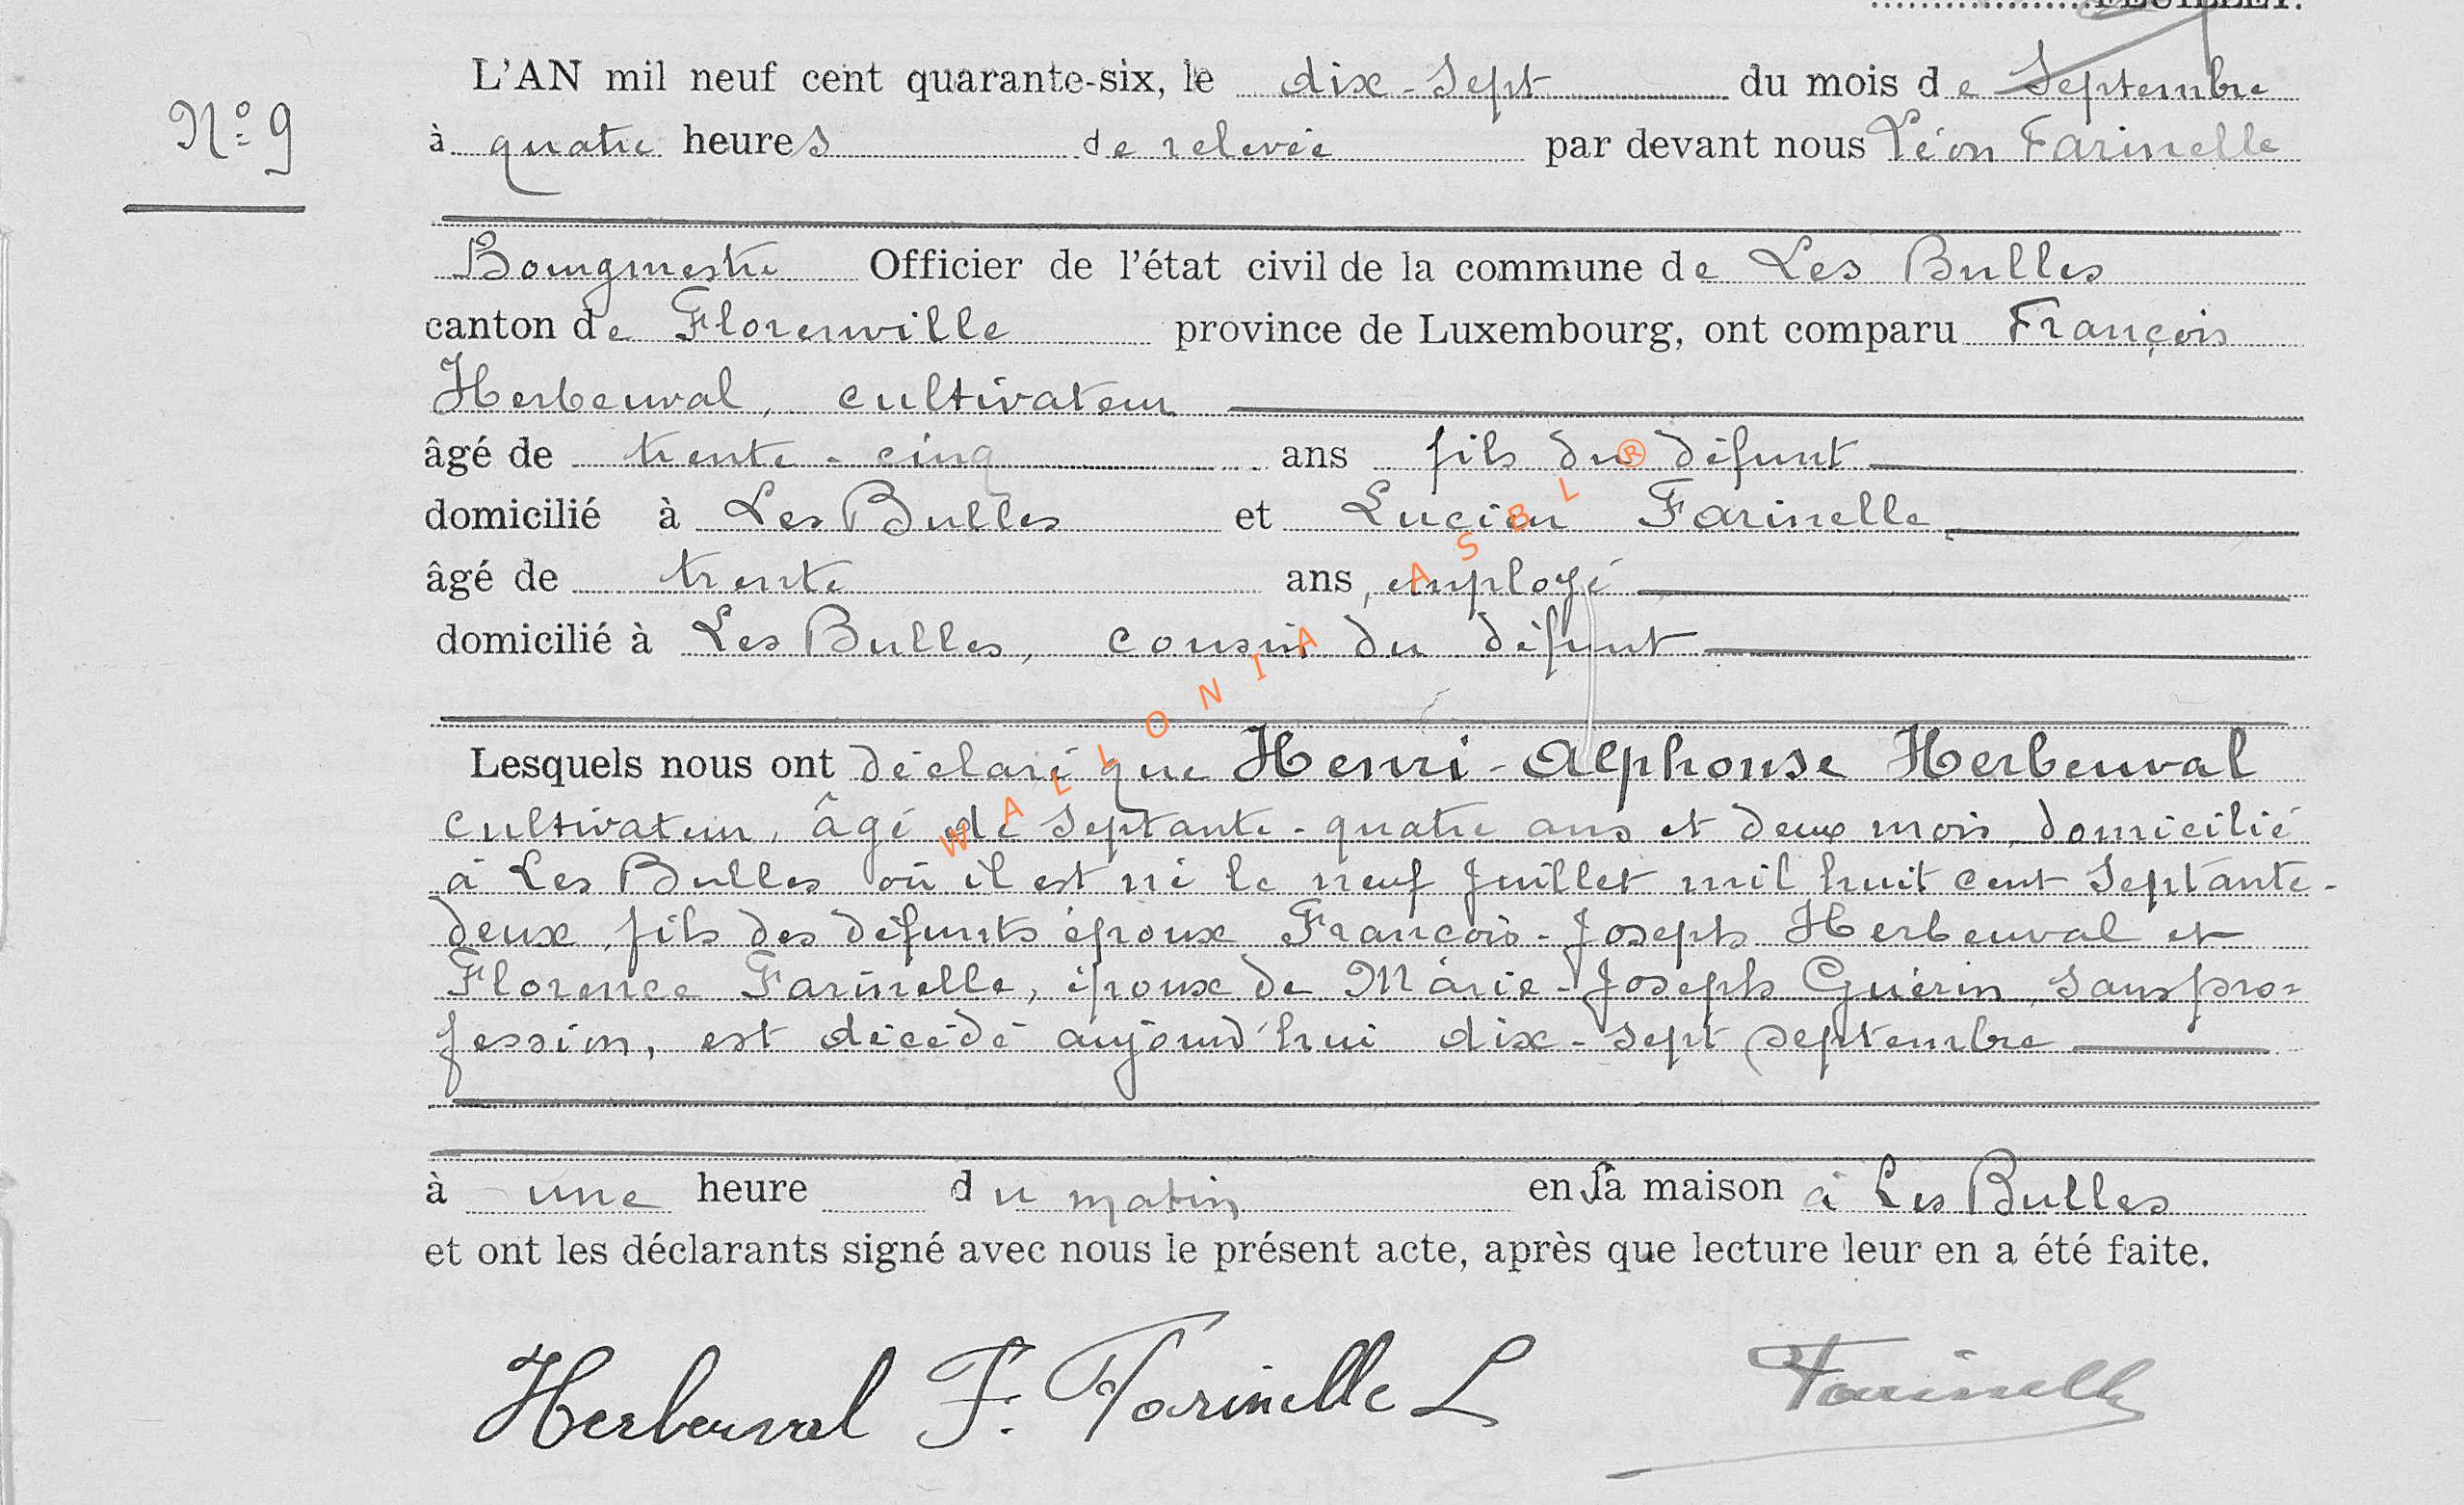 FEUILLET.
L'AN mil neuf cent quarante-six, le dix-sept du mois de Septembre
N° 9
à quatre heures de relevée par devant nous Léon Farinelle
Bourgmestre Officier de l'état civil de la commune de Les Bulles
canton de Florenville province de Luxembourg, ont comparu François
Herbeuval, cultivateur
âgé de trente-cinq ans fils du défunt
domicilié à Les Bulles et Lucien Farinelle
âgé de trente ans, employé
domicilié à Les Bulles, cousin du défunt
Lesquels nous ont déclaré que Henri-Alphonse Herbeuval
cultivateur, âgé de septante-quatre ans et deux mois, domicilié
à Les Bulles où il est né le neuf juillet mil huit cent septante-
deux, fils des défunts époux François-Joseph Herbeuval et
Florence Farinelle, époux de Marie-Joseph Guérin, sans pro=
fession, est décédé aujourd'hui dix-sept septembre
à une heure du matin en sa maison à Les Bulles
et ont les déclarants signé avec nous le présent acte, après que lecture leur en a été faite.
Herbeuval F. Farinelle L Farinelle
WALLONIA ASBL ®